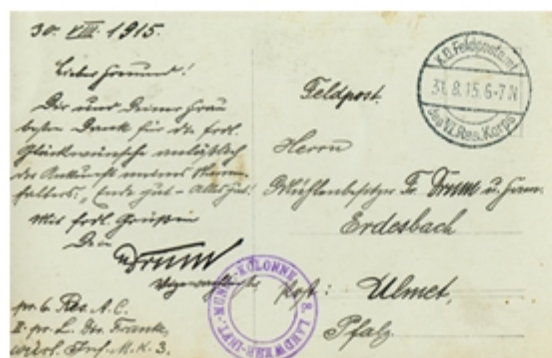 30. VIII. 1915.
Lieber Freund!
Dir und Deiner Frau
besten Dank für die frdl.
Glückwünsche anläßlich
der Ankunft meines Stamm-
halters, Ende gut - Alles gut!
Mit frdl. Grüßen
Dein
Drumm
Vizewachtmstr.
pr. 6. Res. A.C.
II. pr. L. Div. Franke,
Inf.-M.K. 3.
Feldpost.
Herrn
Mühlenbesitzer Fr. Drumm u. Fam.
Erdesbach
Post: Ulmet,
Pfalz.
K.D. Feldpostamt
31.8.15. 6-7 N
des VI. Res. Korps
KOLONNE 8. LANDWEHR-INFT.-MUNIT.-